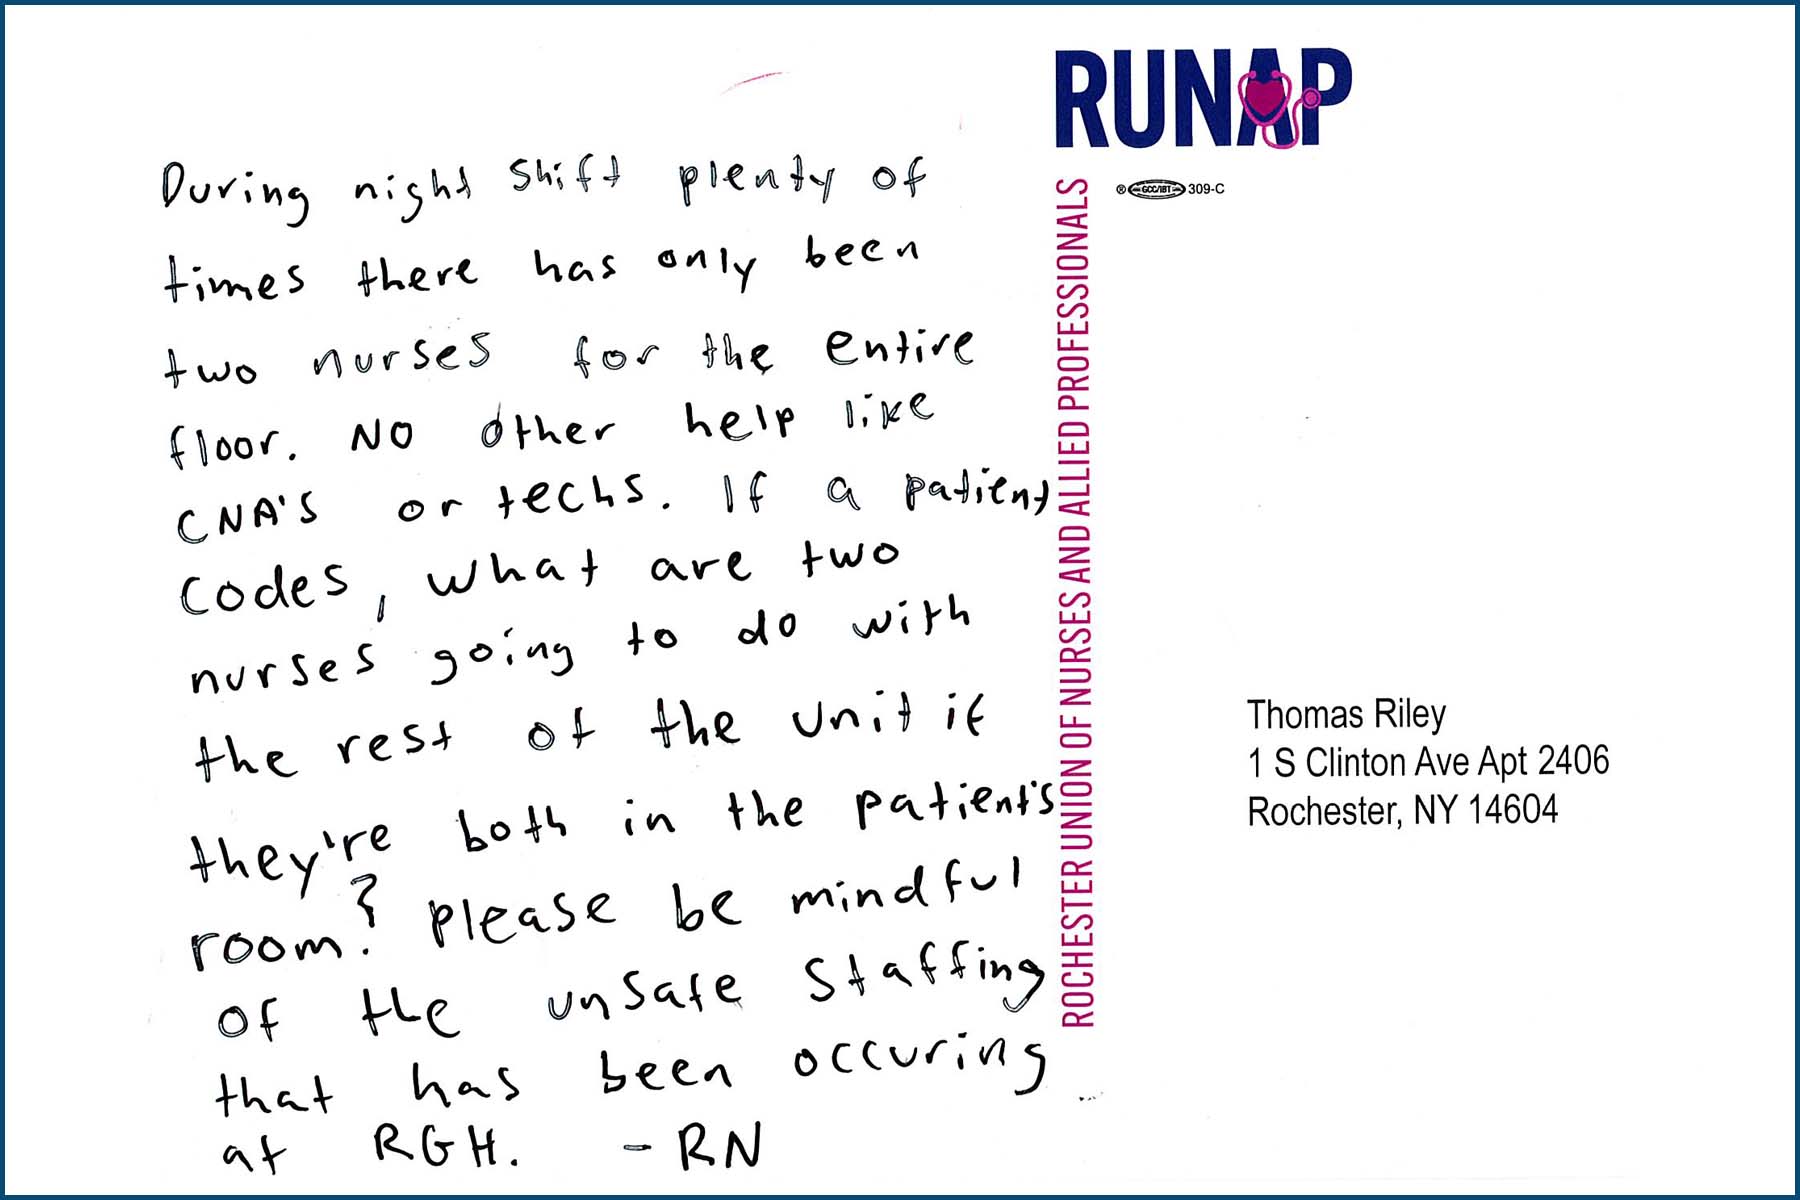 During night shift plenty of
times there has only been
two nurses for the entire
floor. NO other help like
CNA'S or techs. If a patient
codes, what are two
nurses going to do with
the rest of the unit if
they're both in the patient's
room? Please be mindful
of the unsafe staffing
that has been occuring
at RGH. - RN
RUNAP
® GCC/IBT 309-C
ROCHESTER UNION OF NURSES AND ALLIED PROFESSIONALS
Thomas Riley
1 S Clinton Ave Apt 2406
Rochester, NY 14604